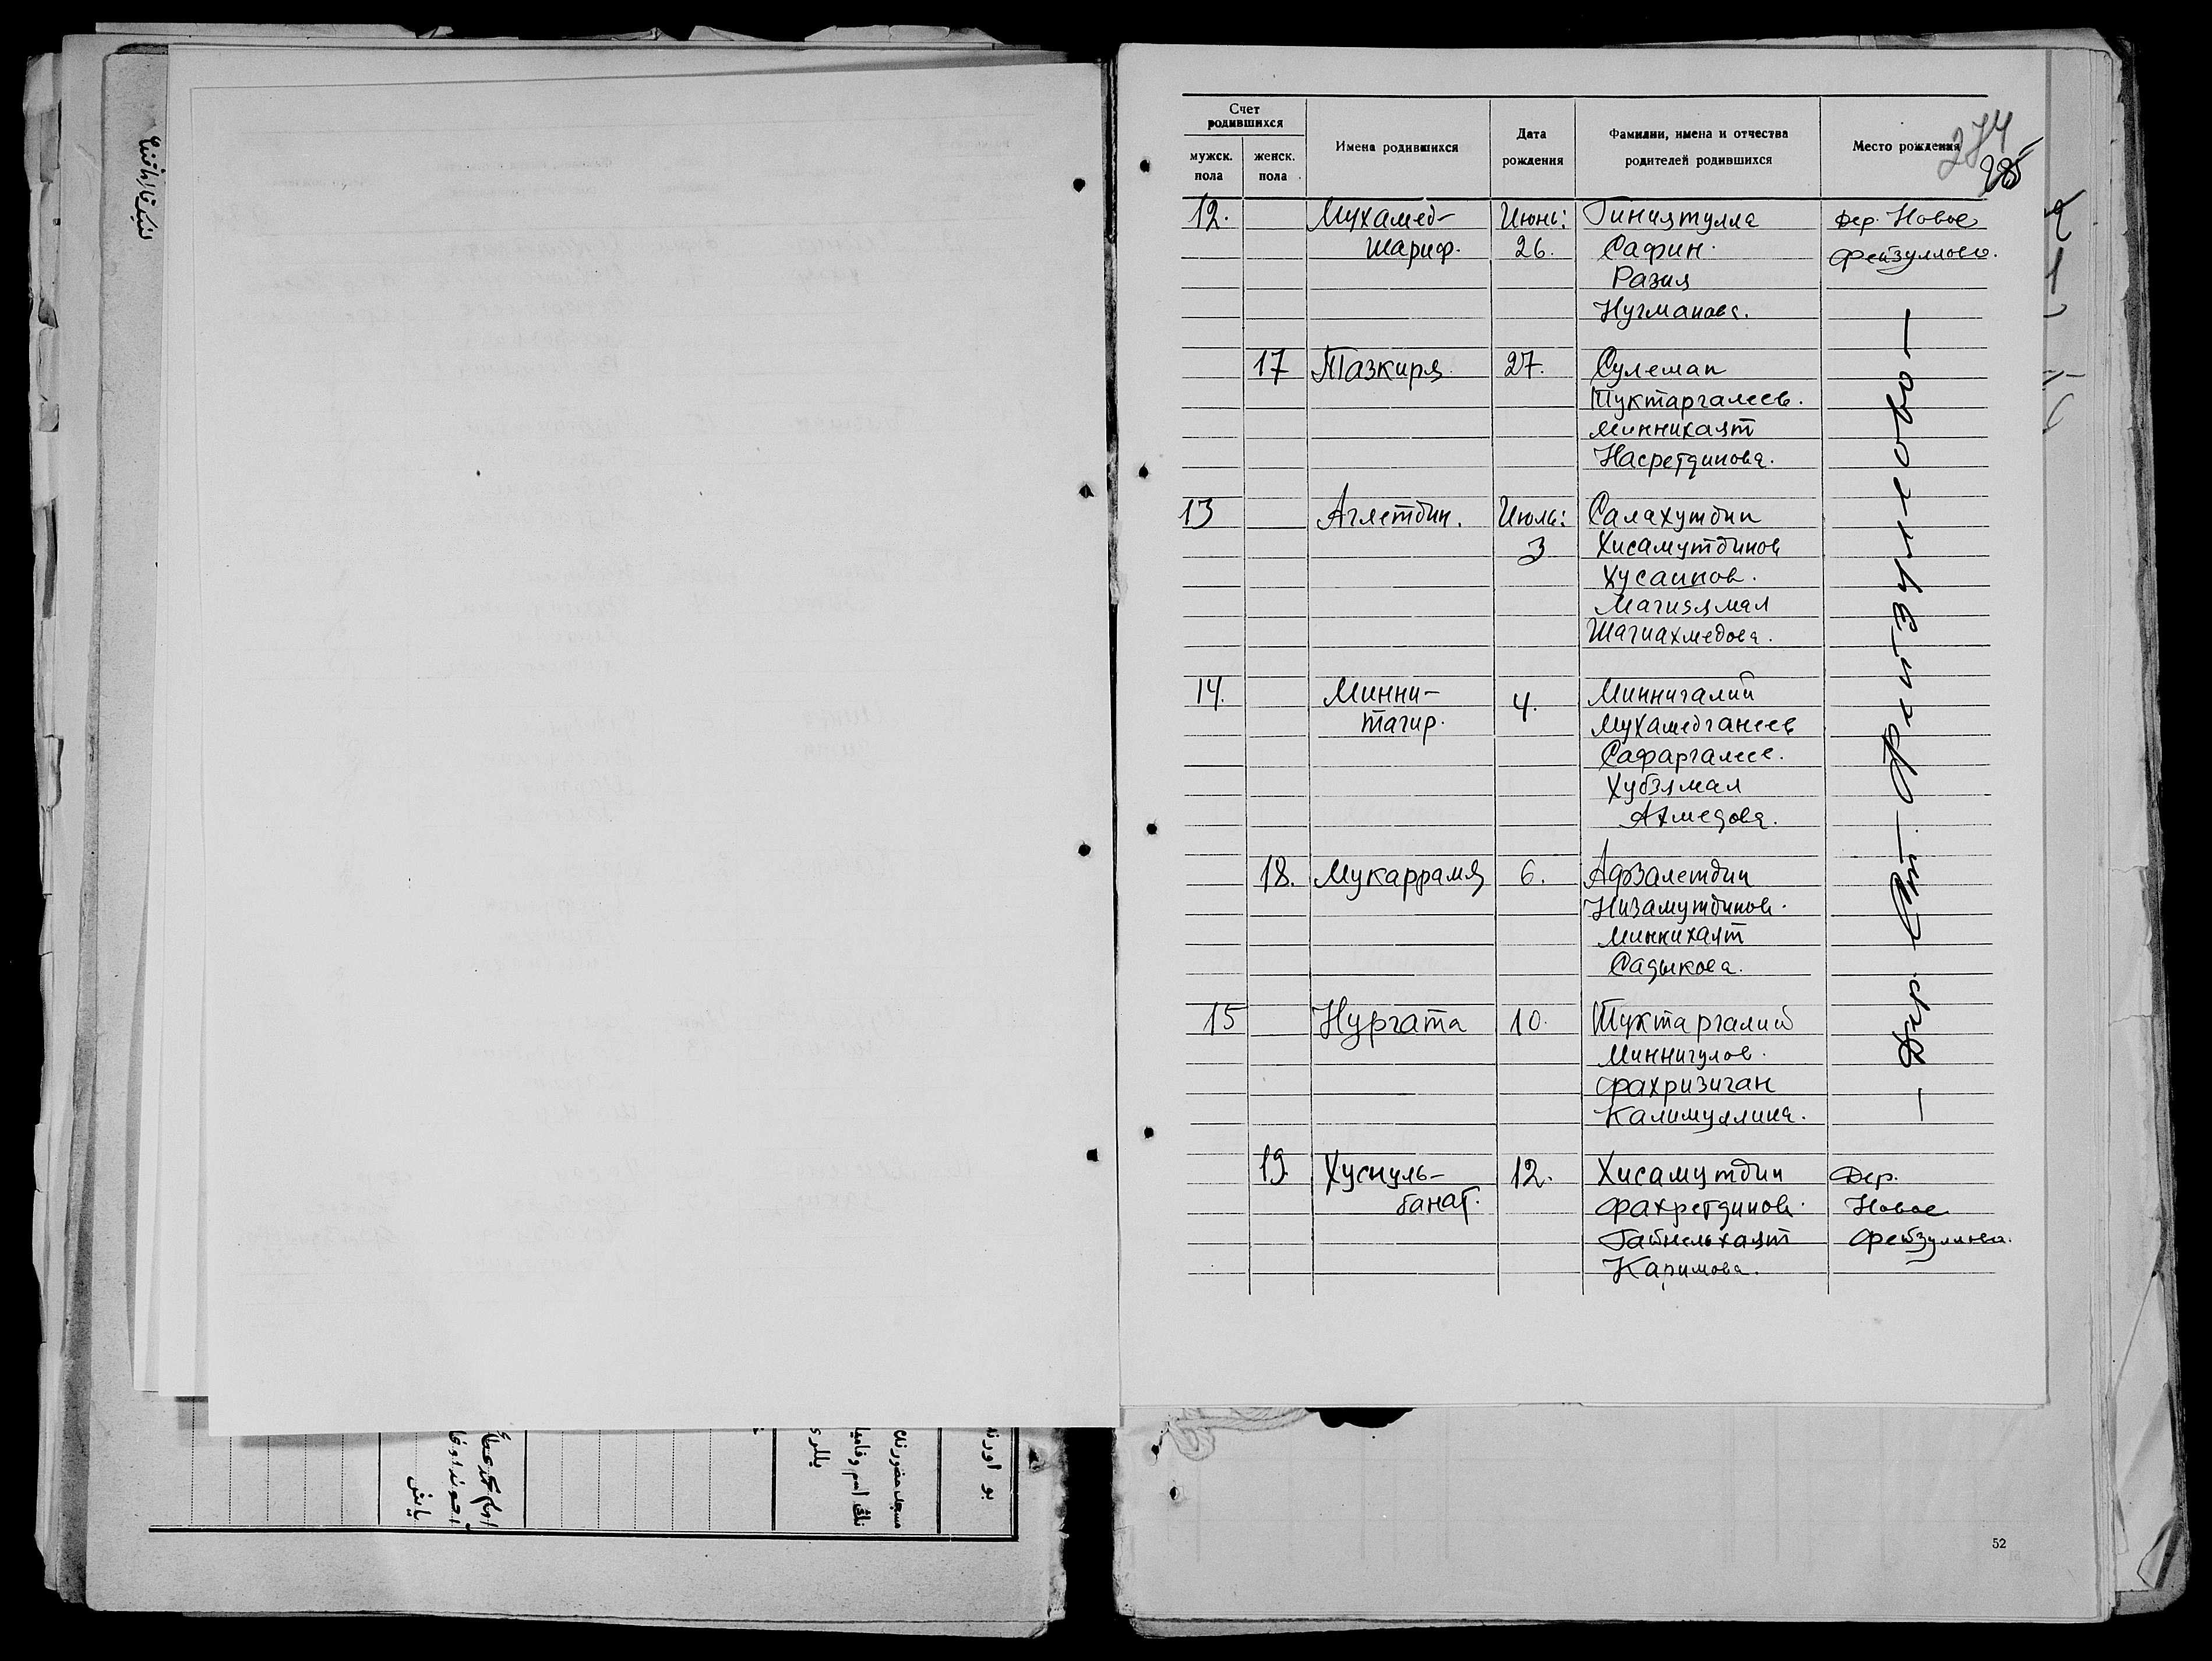 274
285
Счет
родившихся
мужск. пола
женск. пола
Имена родившихся
Дата рождения
Фамилии, имена и отчества
родителей родившихся
Место рождения
12. Мухамед- Июнь: Гиниятулла дер. Новое
шариф. 26. Сафин. Фейзуллово.
Разия
Нугманова.
17 Тазкиря 27. Сулеман
Туктаргалеев.
Миннихаят
Насретдинова.
13 Аглетдин. Июль: Салахутдин
3 Хисамутдинов
Хусаинов.
Магизямал
Шагиахмедова.
14. Минни- 4. Миннигалий
тагир. Мухамедганеев
Сафаргалеев.
Хубзямал
Ахмедова.
— Дер. Ст. Фейзуллово —
18. Мукаррамя 6. Афзалетдин
Низамутдинов.
Миннихаят
Садыкова.
15 Нургата 10. Туктаргалий
Миннигулов.
Фахризиган
Калимуллина.
19. Хуснуль- 12. Хисамутдин Дер.
банат. Фахретдинов. Новое
Гайнельхаят Фейзуллино.
Каримова.
52